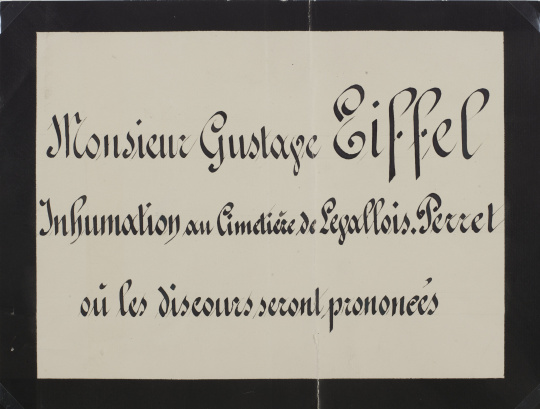 Monsieur Gustave Eiffel
Inhumation au Cimetière de Levallois.Perret
où les discours seront prononcés